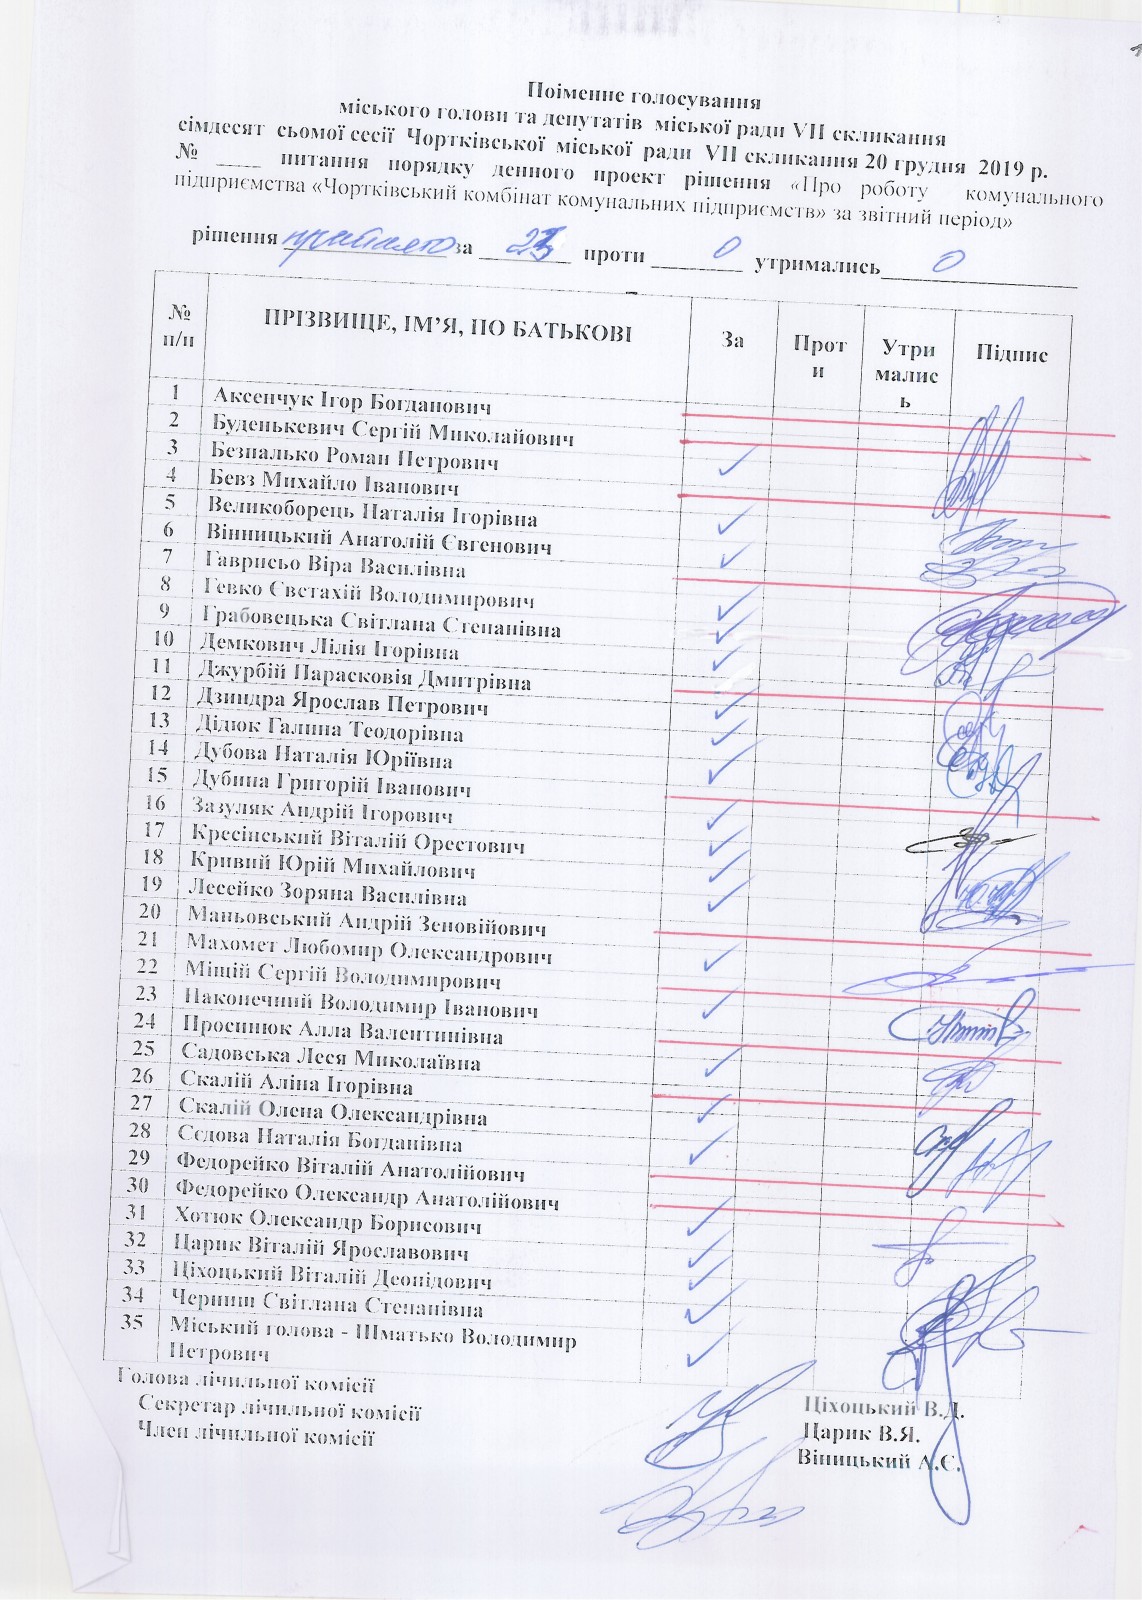 Поіменне голосування
міського голови та депутатів міської ради VII скликання
сімдесят сьомої сесії Чортківської міської ради VII скликання 20 грудня 2019 р.
№ ____ питання порядку денного проект рішення «Про роботу комунального
підприємства «Чортківський комбінат комунальних підприємств» за звітний період»
рішення прийнято за 23 проти 0 утримались 0
№ п/п ПРІЗВИЩЕ, ІМ’Я, ПО БАТЬКОВІ За Проти Утрималис ь Підпис
1 Аксенчук Ігор Богданович
2 Буденькевич Сергій Миколайович
3 Безпалько Роман Петрович ✓
4 Бевз Михайло Іванович
5 Великоборець Наталія Ігорівна ✓
6 Вінницький Анатолій Євгенович ✓
7 Гаврисьо Віра Василівна
8 Гевко Євстахій Володимирович ✓
9 Грабовецька Світлана Степанівна ✓
10 Демкович Лілія Ігорівна ✓
11 Джурбій Парасковія Дмитрівна
12 Дзиндра Ярослав Петрович ✓
13 Дідюк Галина Теодорівна ✓
14 Дубова Наталія Юріївна ✓
15 Дубина Григорій Іванович
16 Зазуляк Андрій Ігорович ✓
17 Кресінський Віталій Орестович ✓
18 Кривий Юрій Михайлович ✓
19 Лесейко Зоряна Василівна ✓
20 Маньовський Андрій Зеновійович
21 Махомет Любомир Олександрович ✓
22 Міщій Сергій Володимирович
23 Наконечний Володимир Іванович ✓
24 Просинюк Алла Валентинівна
25 Садовська Леся Миколаївна ✓
26 Скалій Аліна Ігорівна
27 Скалій Олена Олександрівна ✓
28 Сєдова Наталія Богданівна ✓
29 Федорейко Віталій Анатолійович
30 Федорейко Олександр Анатолійович
31 Хотюк Олександр Борисович ✓
32 Царик Віталій Ярославович ✓
33 Ціхоцький Віталій Деонідович ✓
34 Черниш Світлана Степанівна ✓
35 Міський голова - Шматько Володимир ✓
Петрович
Голова лічильної комісії Ціхоцький В.Д.
Секретар лічильної комісії Царик В.Я.
Член лічильної комісії Віницький А.Є.